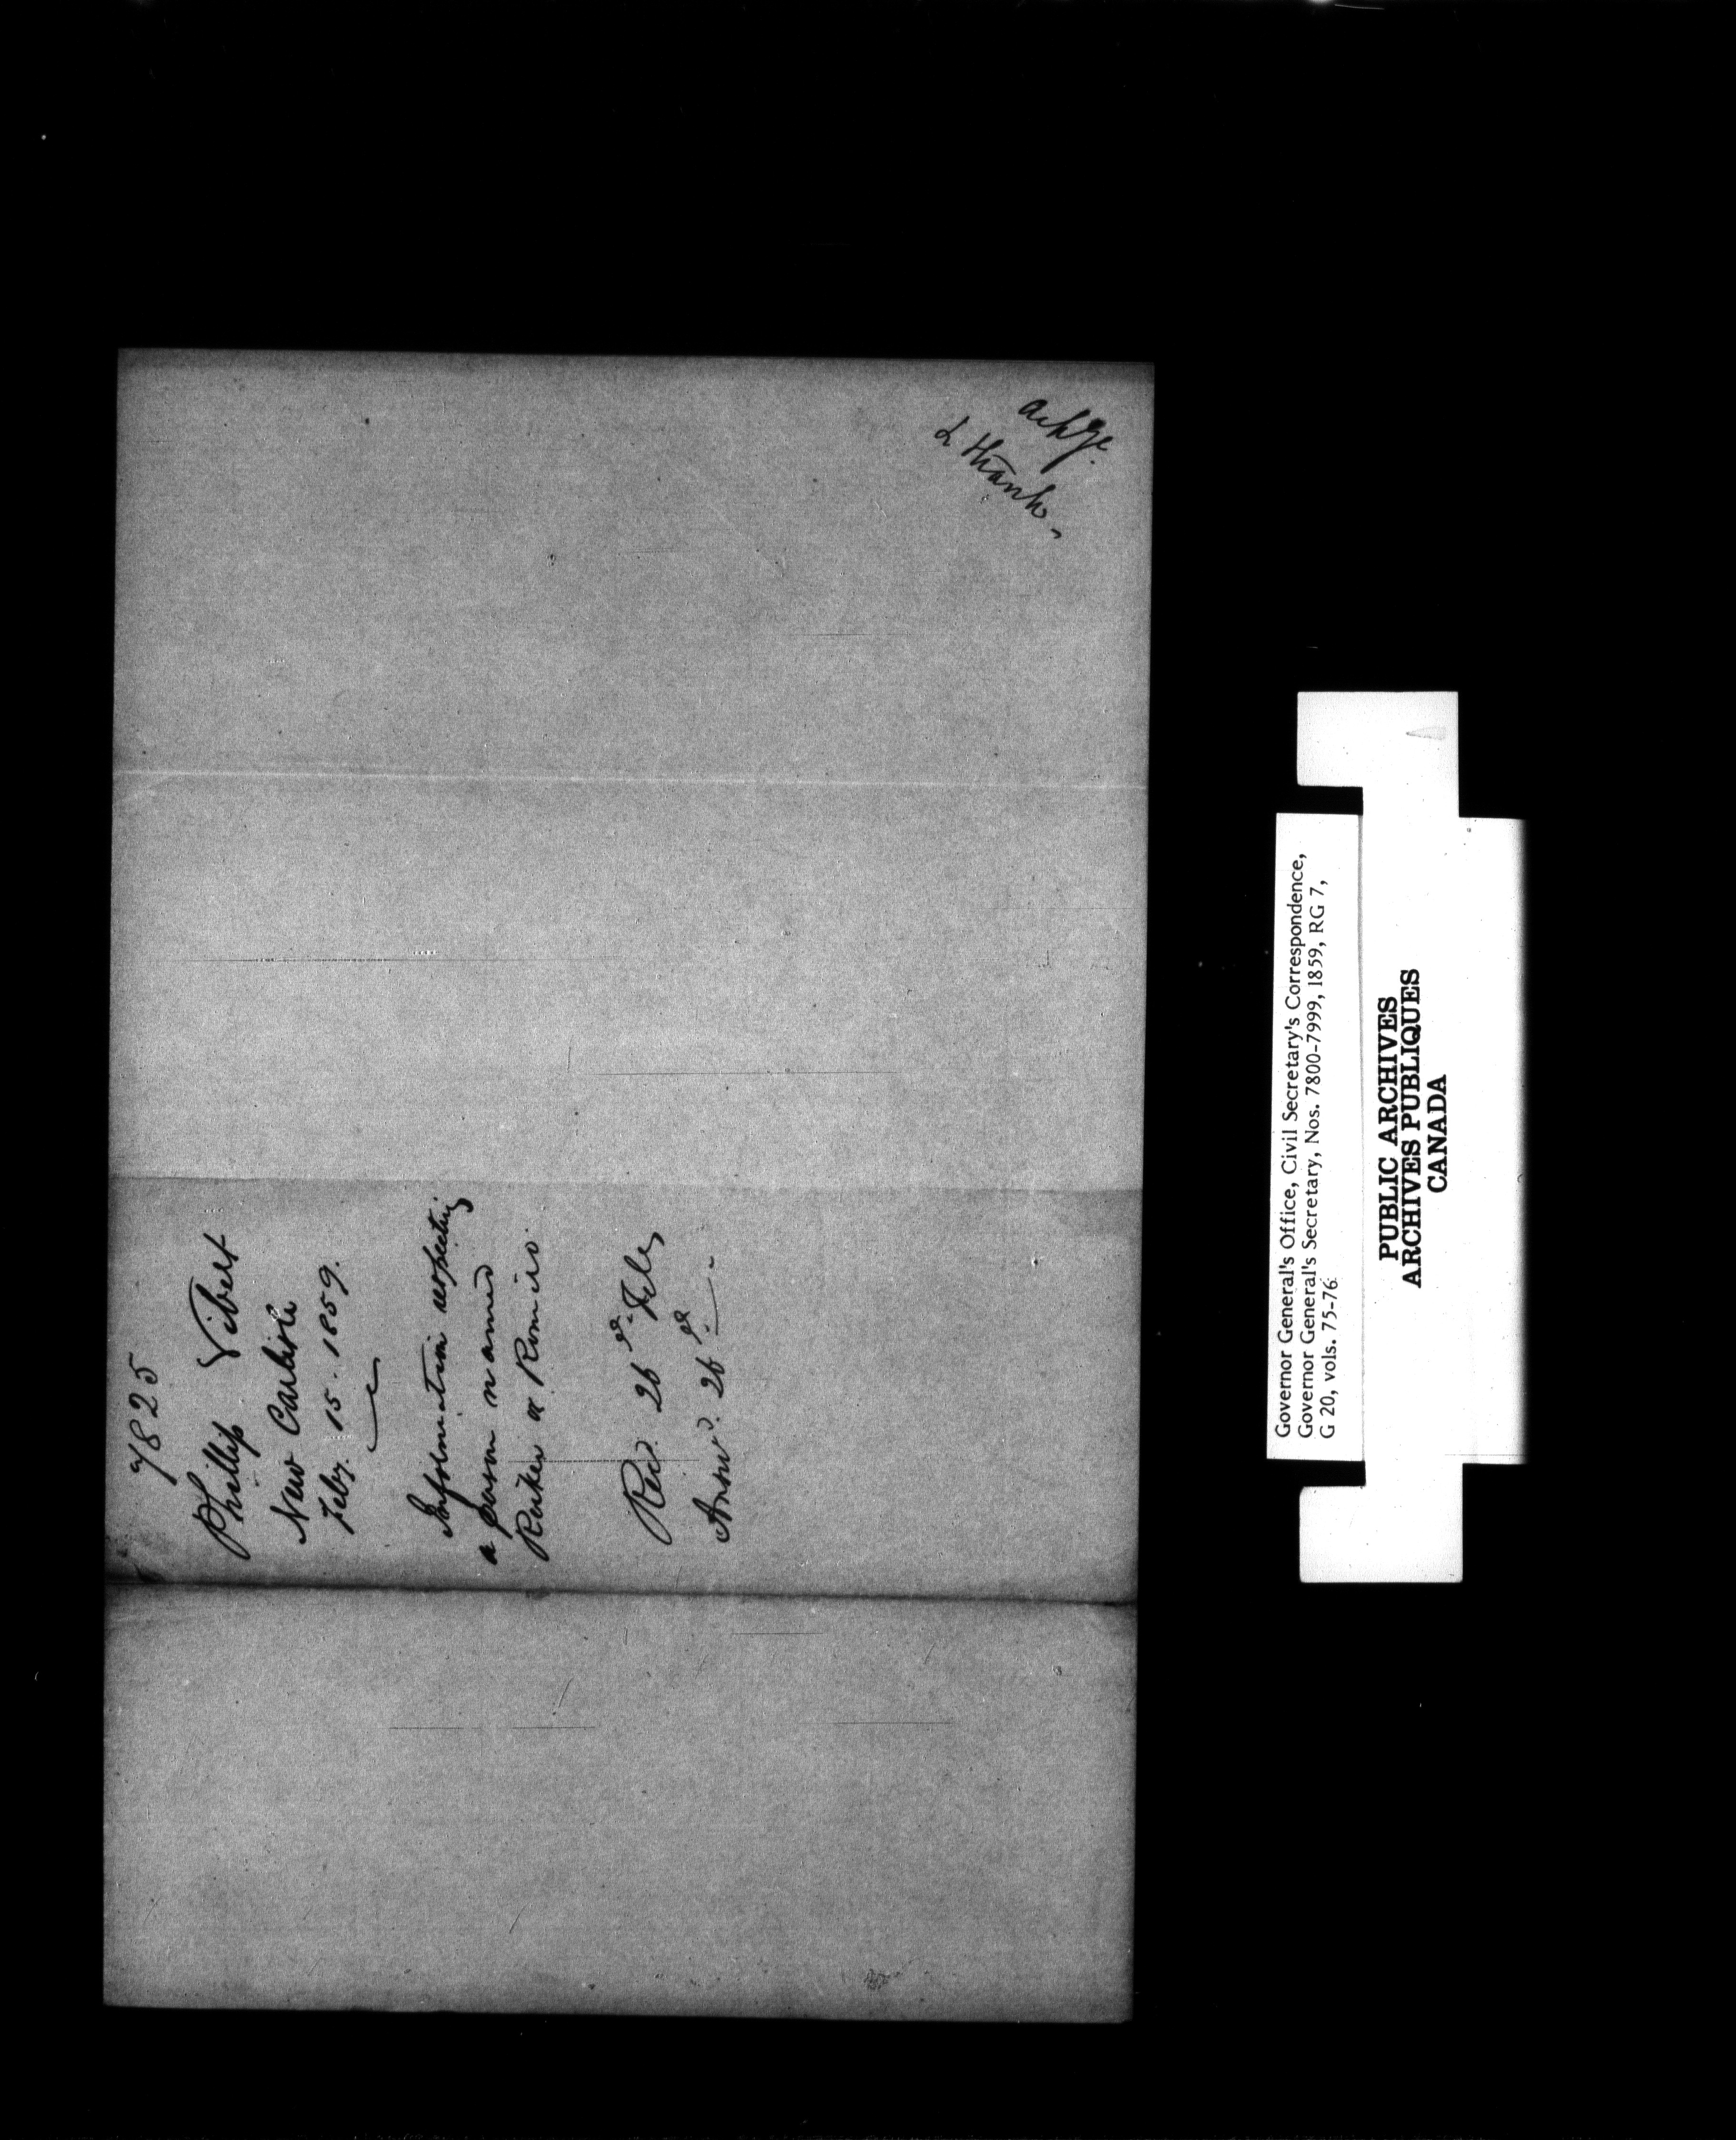 7825
Phillip Vibert
New Carlisle
Feby. 15. 1859.
Information respecting
a person named
or
Recd. 26th Feby
Answd. 26th.
ackge.
& thank.
Governor General's Office, Civil Secretary's Correspondence,
Governor General's Secretary, Nos. 7800-7999, 1859, RG 7,
G 20, vols. 75-76
PUBLIC ARCHIVES
ARCHIVES PUBLIQUES
CANADA